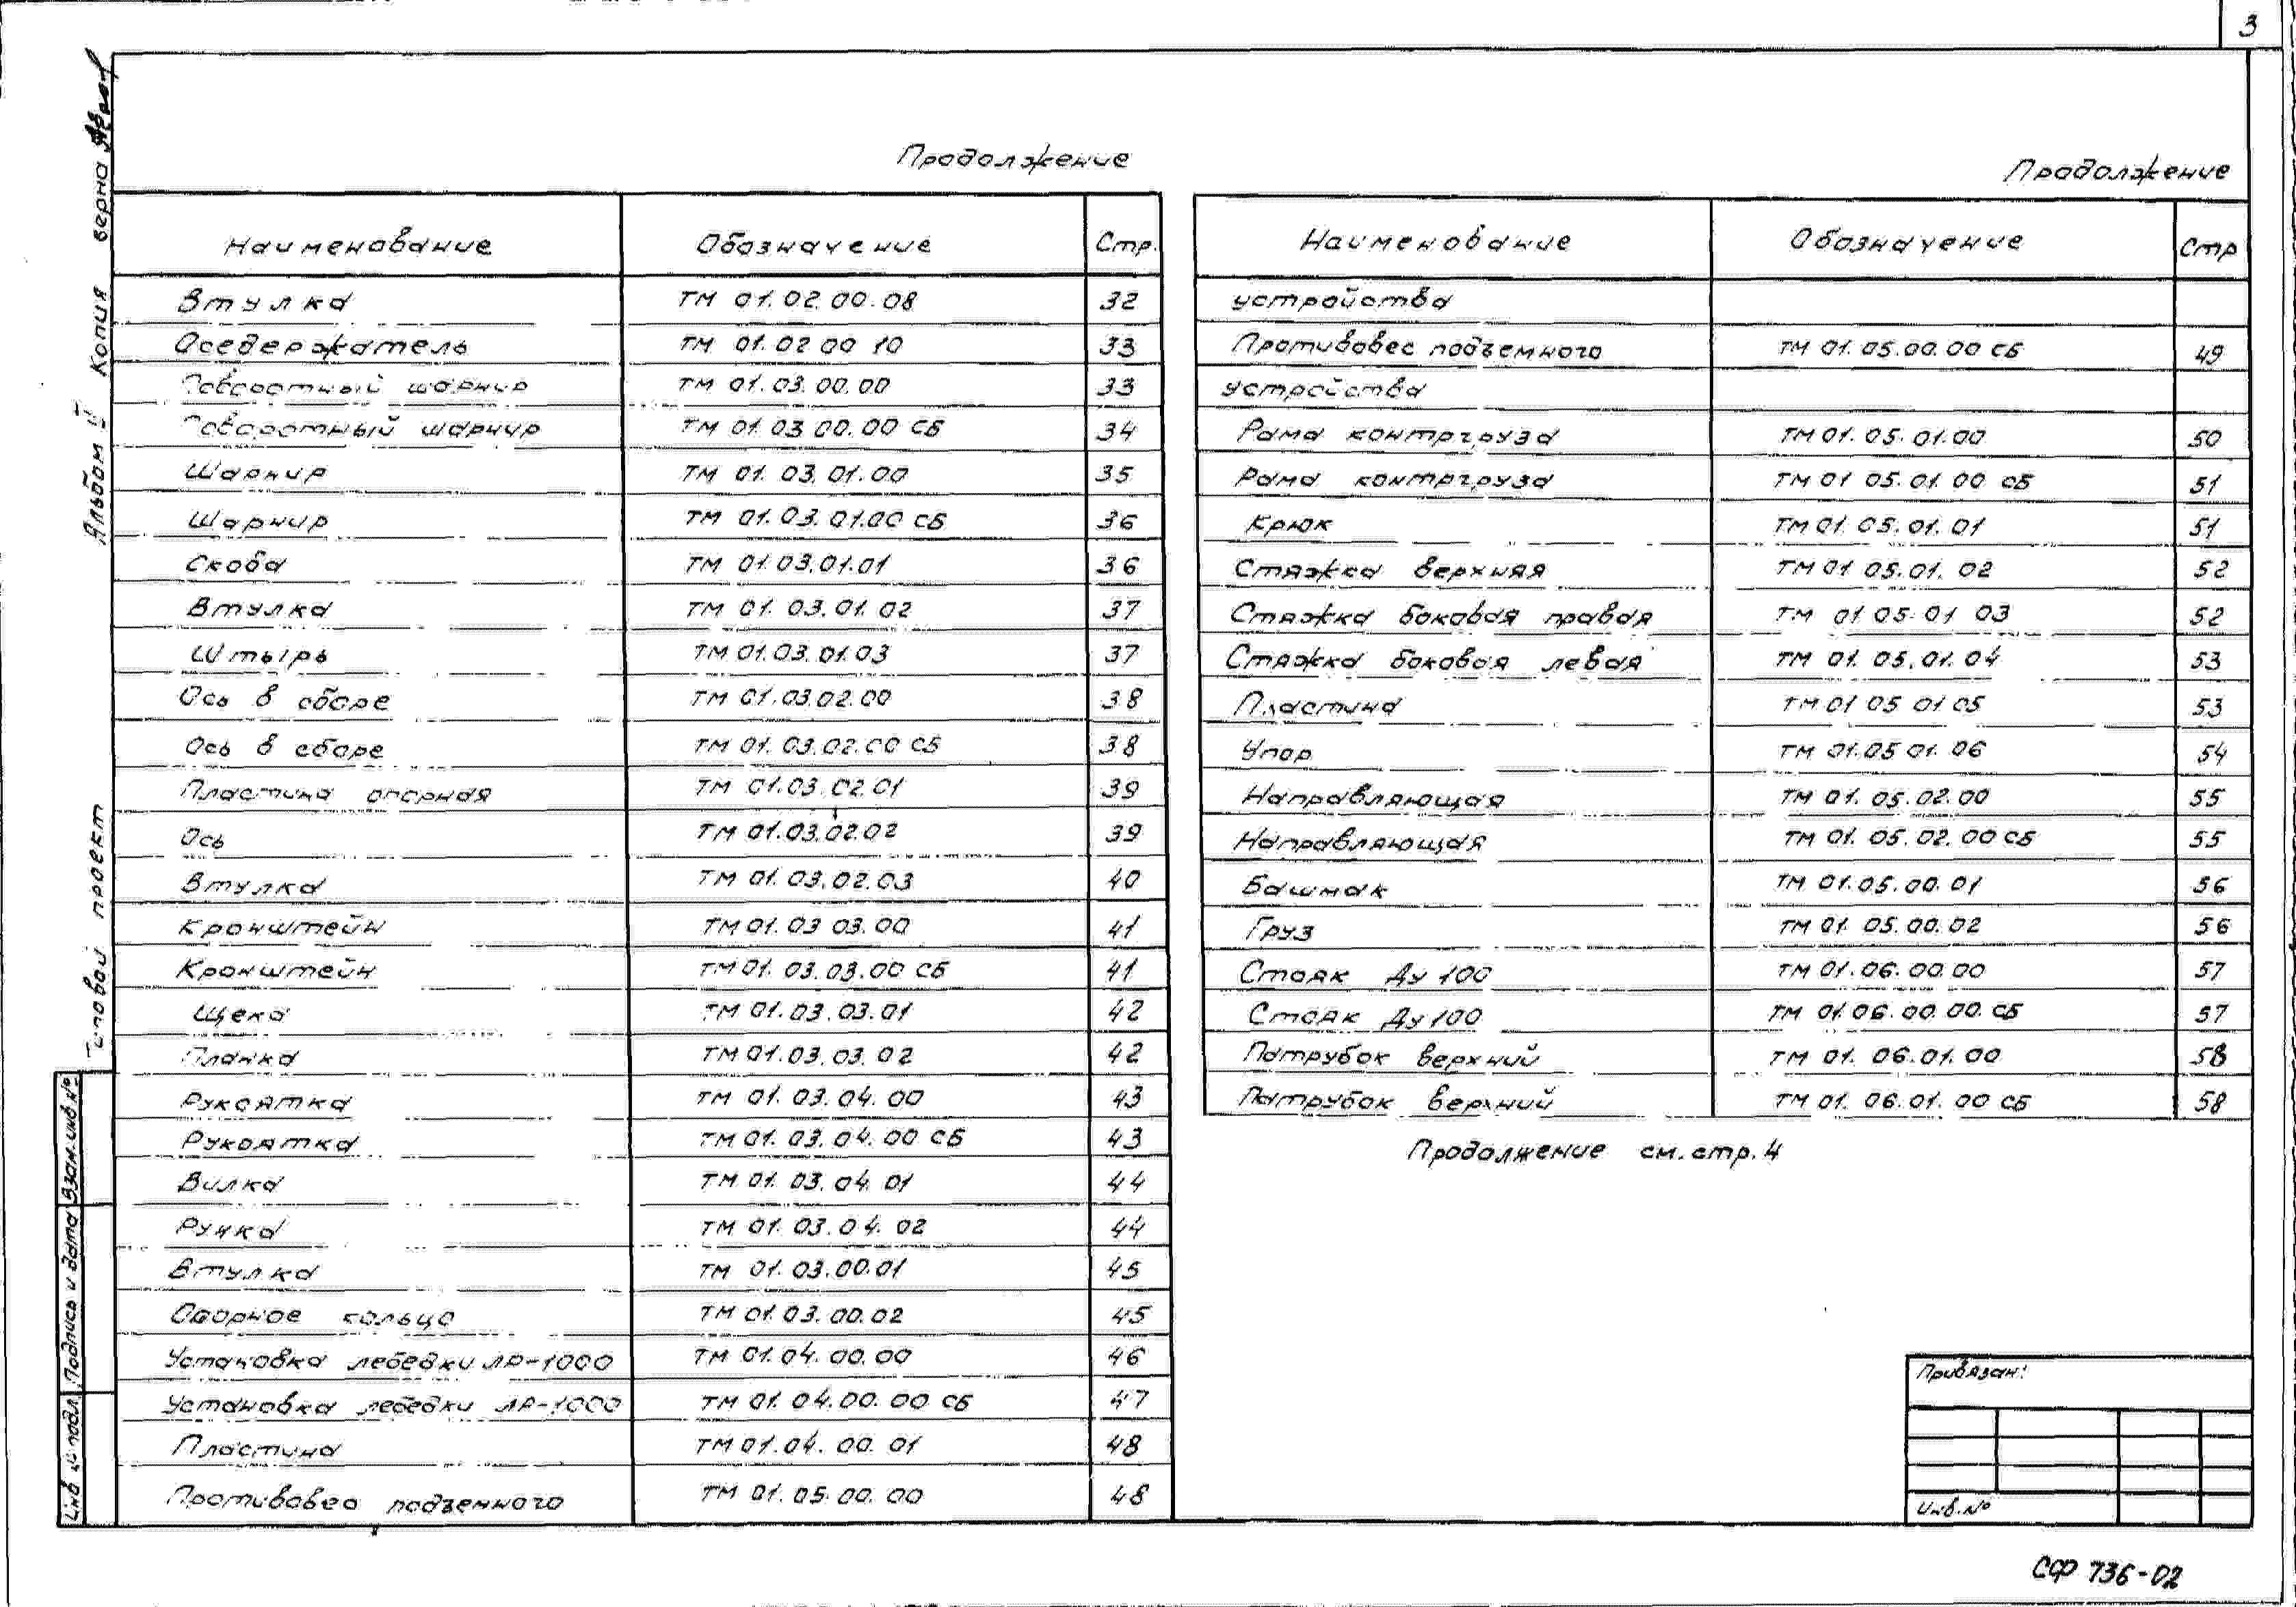 3
Продолжение
Наименование Обозначение Стр.
Втулка ТМ 01.02.00.08 32
Оседержатель ТМ 01.02 00 10 33
Поворотный шарнир ТМ 01.03.00.00 33
Поворотный шарнир ТМ 01.03 00.00 СБ 34
Шарнир ТМ 01.03.01.00 35
Шарнир ТМ 01.03.01.00 СБ 36
Скоба ТМ 01.03.01.01 36
Втулка ТМ 01.03.01.02 37
Штырь ТМ 01.03.01.03 37
Ось в сборе ТМ 01.03.02.00 38
Ось в сборе ТМ 01.03.02.00 СБ 38
Пластина опорная ТМ 01.03.02.01 39
Ось ТМ 01.03.02.02 39
Втулка ТМ 01.03.02.03 40
Кронштейн ТМ 01.03 03.00 41
Кронштейн ТМ 01.03.03.00 СБ 41
Щека ТМ 01.03.03.01 42
Планка ТМ 01.03.03.02 42
Рукоятка ТМ 01.03.04.00 43
Рукоятка ТМ 01.03.04.00 СБ 43
Вилка ТМ 01.03.04.01 44
Ручка ТМ 01.03.04.02 44
Втулка ТМ 01.03.00.01 45
Опорное кольцо ТМ 01.03.00.02 45
Установка лебедки ЛР-1000 ТМ 01.04.00.00 46
Установка лебедки ЛР-1000 ТМ 01.04.00.00 СБ 47
Пластина ТМ 01.04.00.01 48
Противовес подъемного ТМ 01.05.00.00 48
Продолжение
Наименование Обозначение Стр
устройства
Противовес подъемного ТМ 01.05.00.00 СБ 49
устройства
Рама контргруза ТМ 01.05.01.00 50
Рама контргруза ТМ 01 05.01.00 СБ 51
Крюк ТМ 01.05.01.01 51
Стяжка верхняя ТМ 01 05.01.02 52
Стяжка боковая правая ТМ 01 05.01 03 52
Стяжка боковая левая ТМ 01.05.01.04 53
Пластина ТМ 01 05 01 05 53
Упор ТМ 01.05 01.06 54
Направляющая ТМ 01.05.02.00 55
Направляющая ТМ 01.05.02.00 СБ 55
Башмак ТМ 01.05.00.01 56
Груз ТМ 01 05.00.02 56
Стояк Ду 100 ТМ 01.06.00.00 57
Стояк Ду 100 ТМ 01.06.00.00.СБ 57
Патрубок верхний ТМ 01.06.01.00 58
Патрубок верхний ТМ 01.06.01.00 СБ 58
Продолжение см. стр. 4
Привязан:
Инв. №
СФ 736-02
Типовой проект Альбом Копия верна
Инв № подл. Подпись и дата Взам. инв №